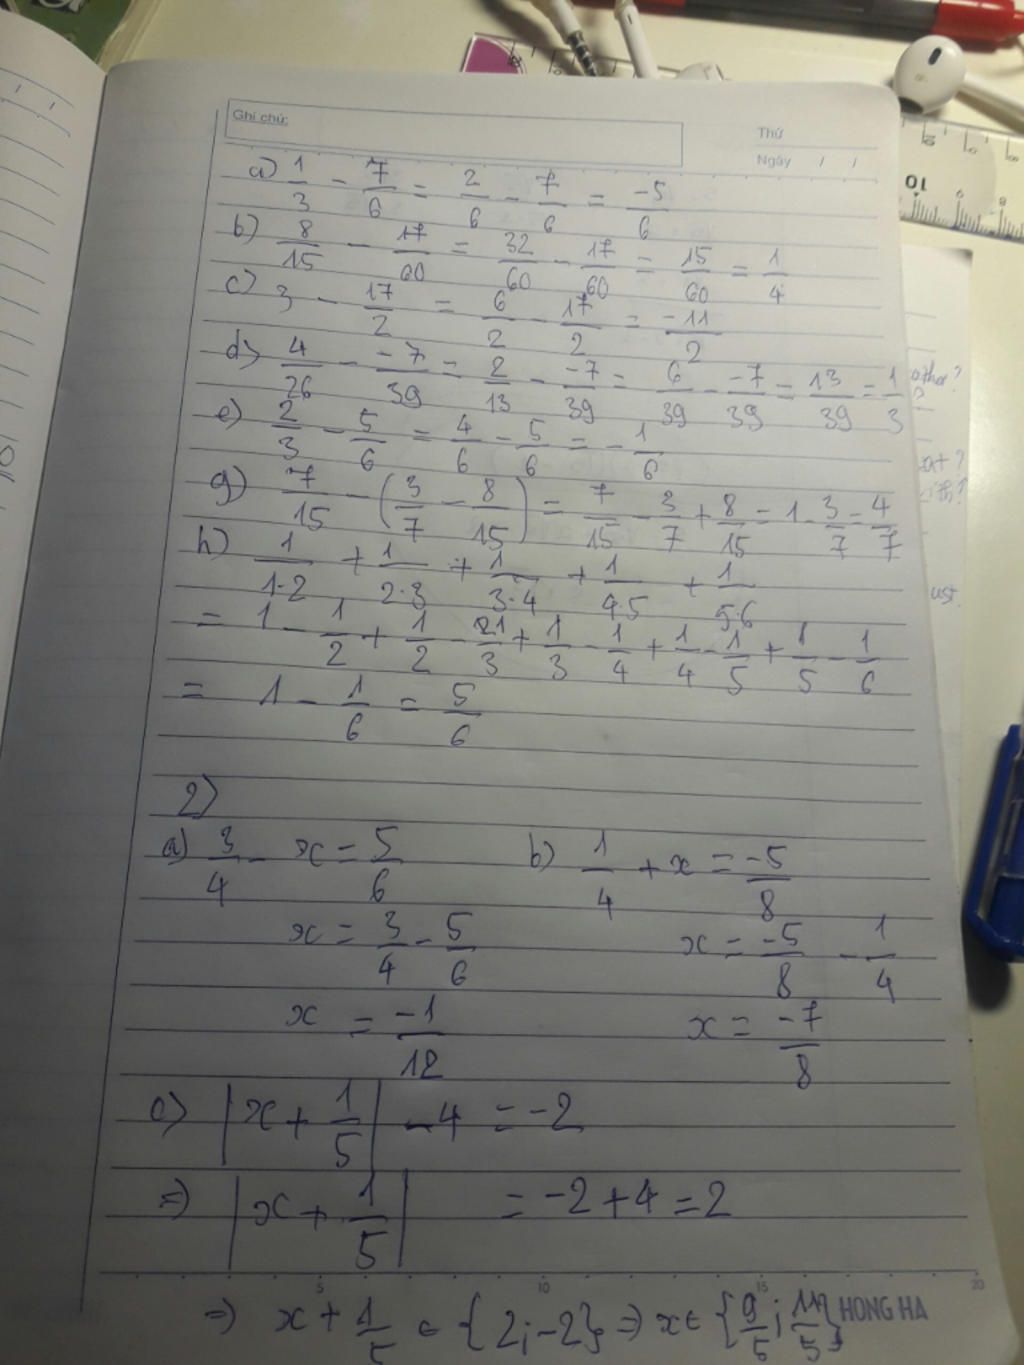 Ghi chú:
Thứ
Ngày / /
a) 1/3 - 7/6 = 2/6 - 7/6 = -5/6
b) 8/15 - 17/60 = 32/60 - 17/60 = 15/60 = 1/4
c) 3 - 17/2 = 6/2 - 17/2 = -11/2
d) 4/26 - -7/39 = 2/13 - -7/39 = 6/39 - -7/39 = 13/39 = 1/3
e) 2/3 - 5/6 = 4/6 - 5/6 = -1/6
g) 7/15 - (3/7 - 8/15) = 7/15 - 3/7 + 8/15 = 1 - 3/7 = 4/7
h) 1/1.2 + 1/2.3 + 1/3.4 + 1/4.5 + 1/5.6
= 1 - 1/2 + 1/2 - 1/3 + 1/3 - 1/4 + 1/4 - 1/5 + 1/5 - 1/6
= 1 - 1/6 = 5/6
2)
a) 3/4 - x = 5/6
x = 3/4 - 5/6
x = -1/12
b) 1/4 + x = -5/8
x = -5/8 - 1/4
x = -7/8
c) |x + 1/5| - 4 = -2
=) |x + 1/5| = -2 + 4 = 2
5 10 15 20
=) x + 1/5 ∈ {2; -2} =) x ∈ {9/5; 11/5}
HONG HA
10
ust.